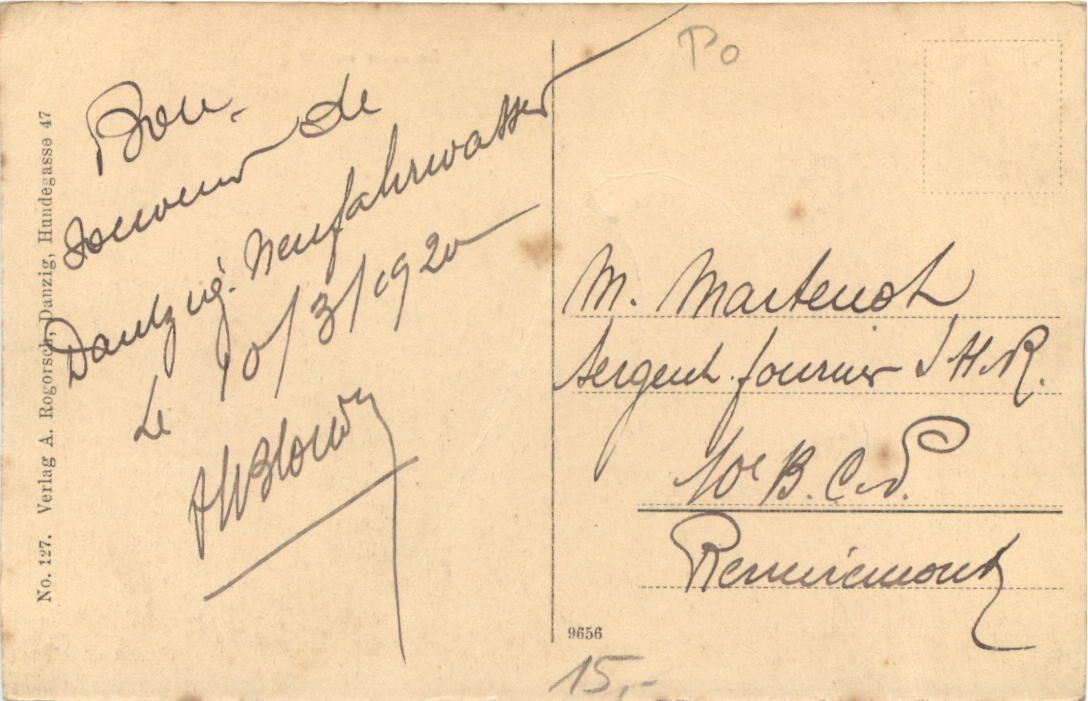 Bon
souvenir de
Dantzig. Neufahrwasser
Le 10/3/1920
M. Martenot
sergent fourrier S.H.R.
10e B. C. P.
Remiremont
No. 127. Verlag A. Rogorsch, Danzig, Hundegasse 47
9656
15,-
Po